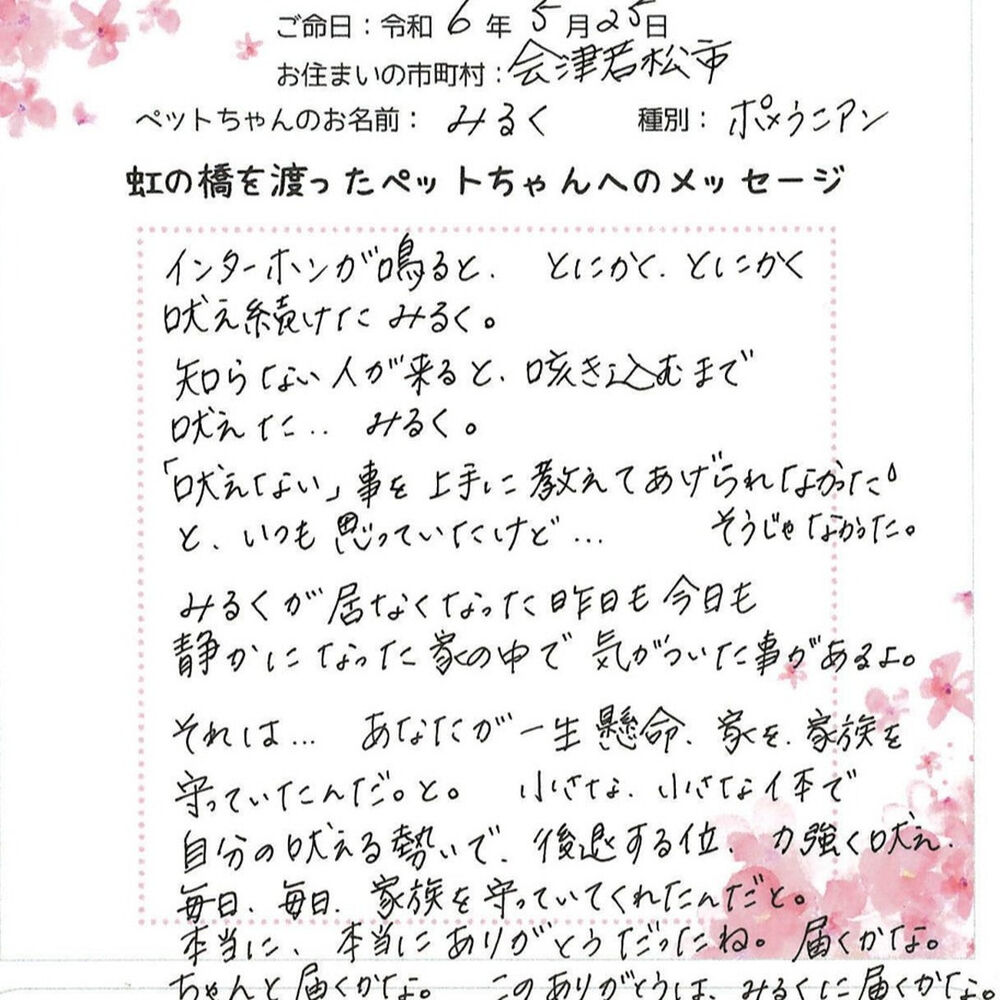 ご命日：令和 6 年 5 月 25 日
お住まいの市町村：会津若松市
ペットちゃんのお名前： みるく 種別： ポメラニアン
虹の橋を渡ったペットちゃんへのメッセージ
インターホンが鳴ると、 とにかく、とにかく
吠え続けた みるく。
知らない人が来ると、咳き込むまで
吠えた… みるく。
「吠えない」事を上手に教えてあげられなかった。
と、いつも思っていたけど… そうじゃなかった。
みるくが居なくなった昨日も今日も
静かになった家の中で 気がついた事があるよ。
それは… あなたが一生懸命、家を、家族を
守っていたんだ。と。 小さな、小さな体で
自分の吠える勢いで、後退する位、力強く吠え、
毎日、毎日、家族を守っていてくれたんだと。
本当に、本当にありがとうだったね。届くかな。
ちゃんと届くかな。 このありがとうは、みるくに届くかな。